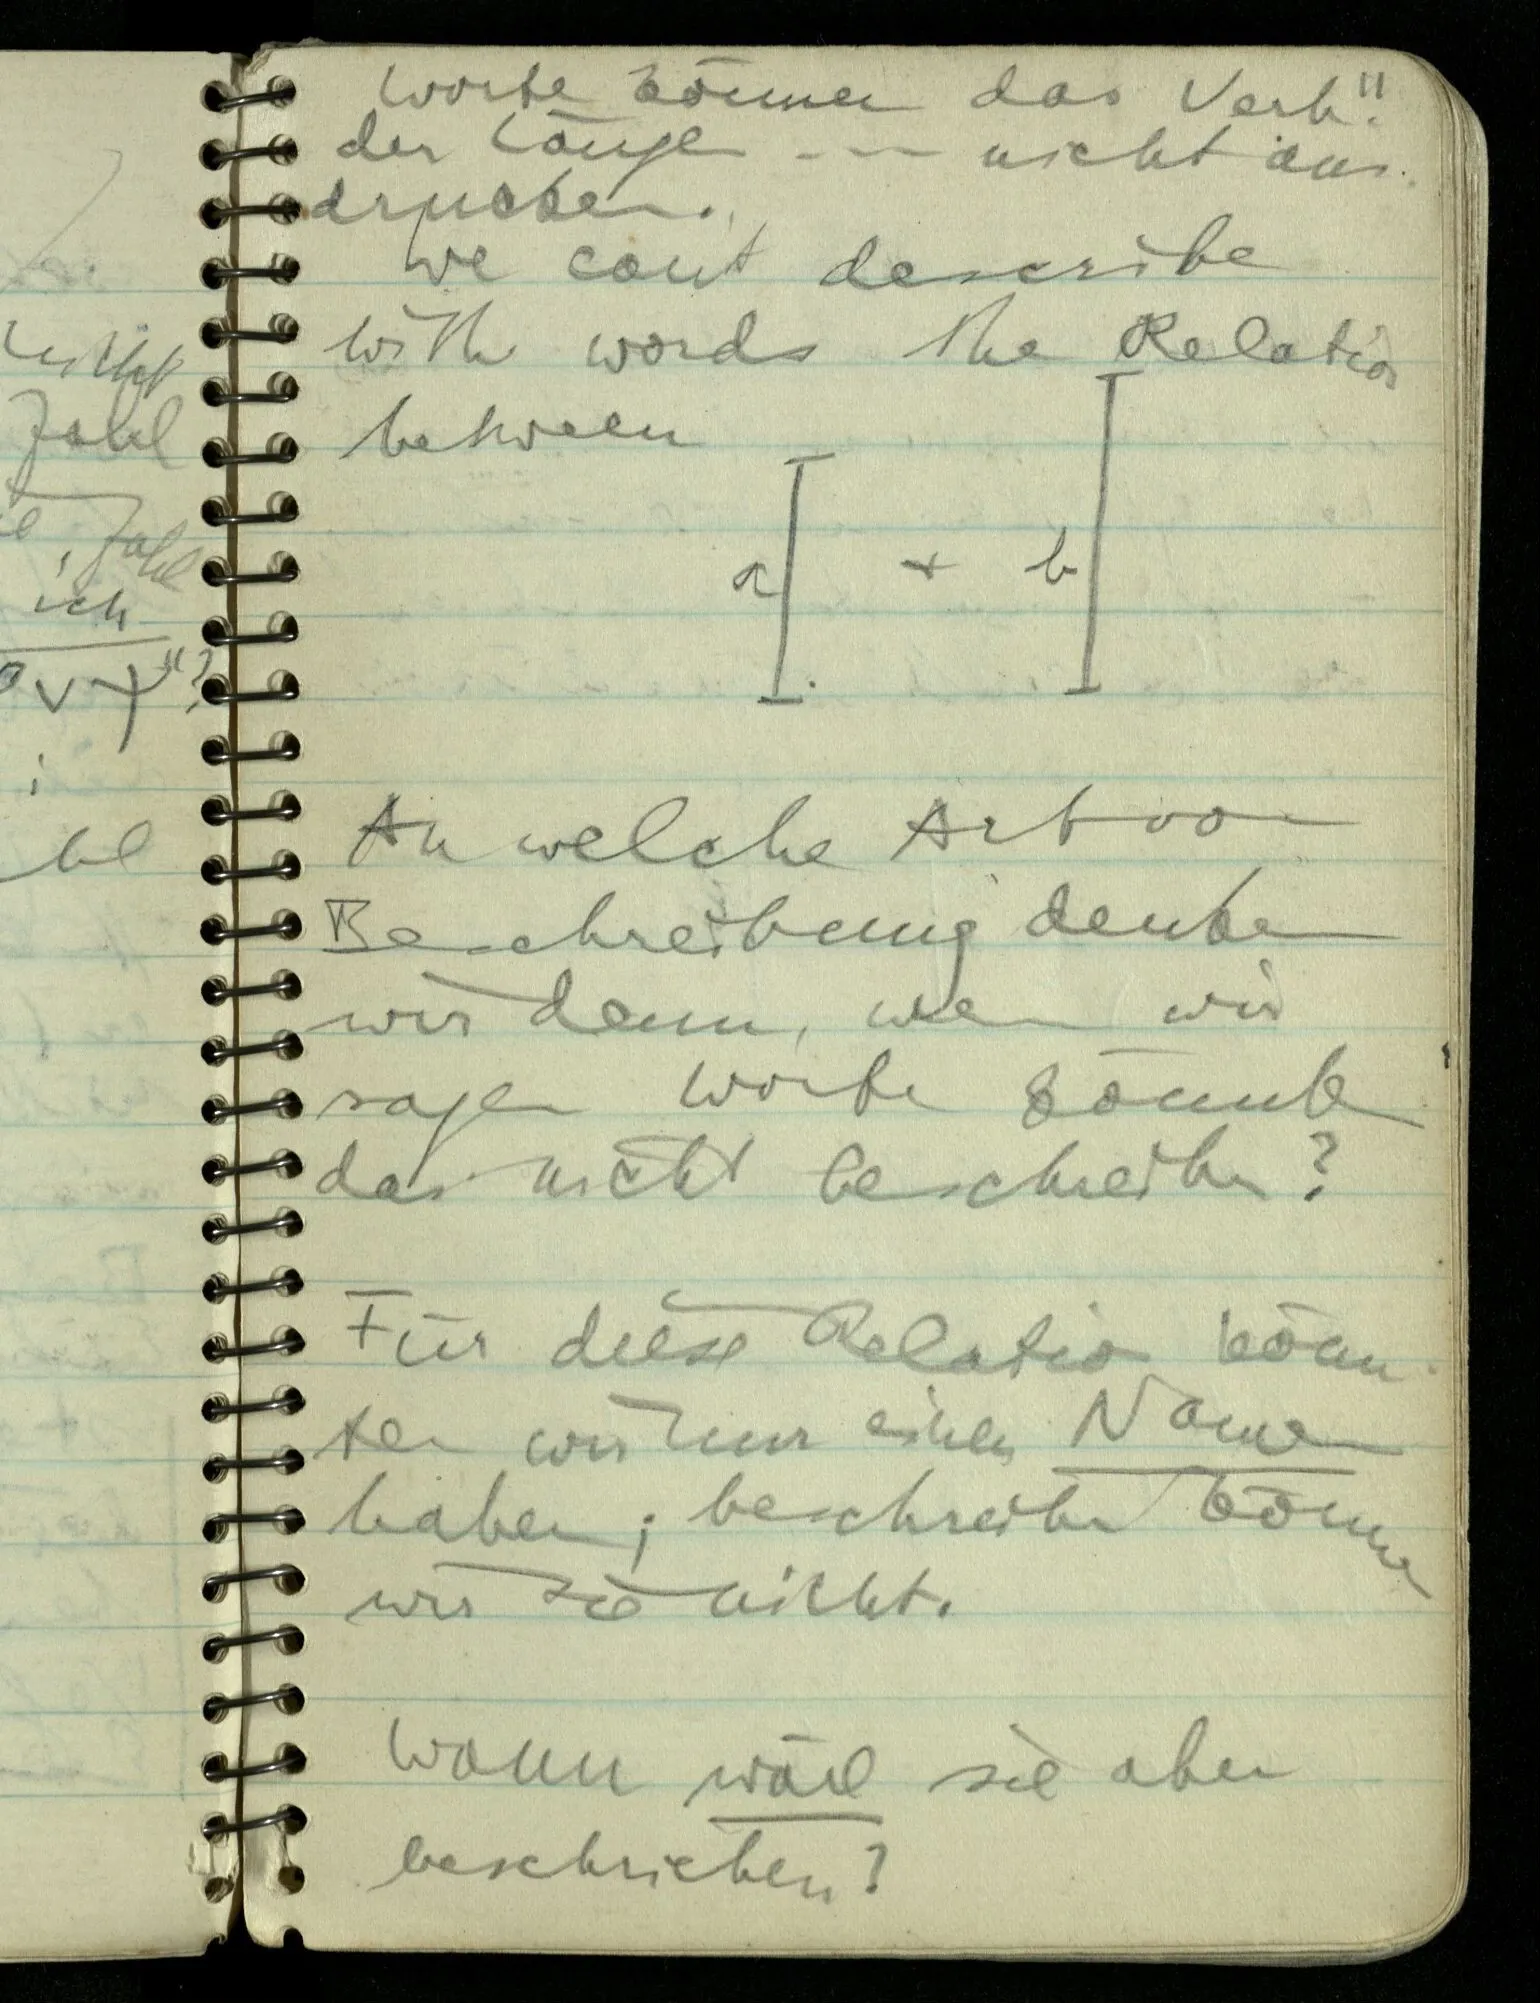 nicht
Zahl
Zahl
ich
Worte können das Verh."
der Länge --- nicht aus-
drücken.
We can't describe
with words the Relation
between
a + b
An welche Art von
Beschreibung denken
wir denn, wenn wir
sagen Worte könnten
das nicht beschreiben?
Für diese Relation könn-
ten wir nur einen Namen
haben; beschreiben können
wir sie nicht.
Wann wäre sie aber
beschrieben?